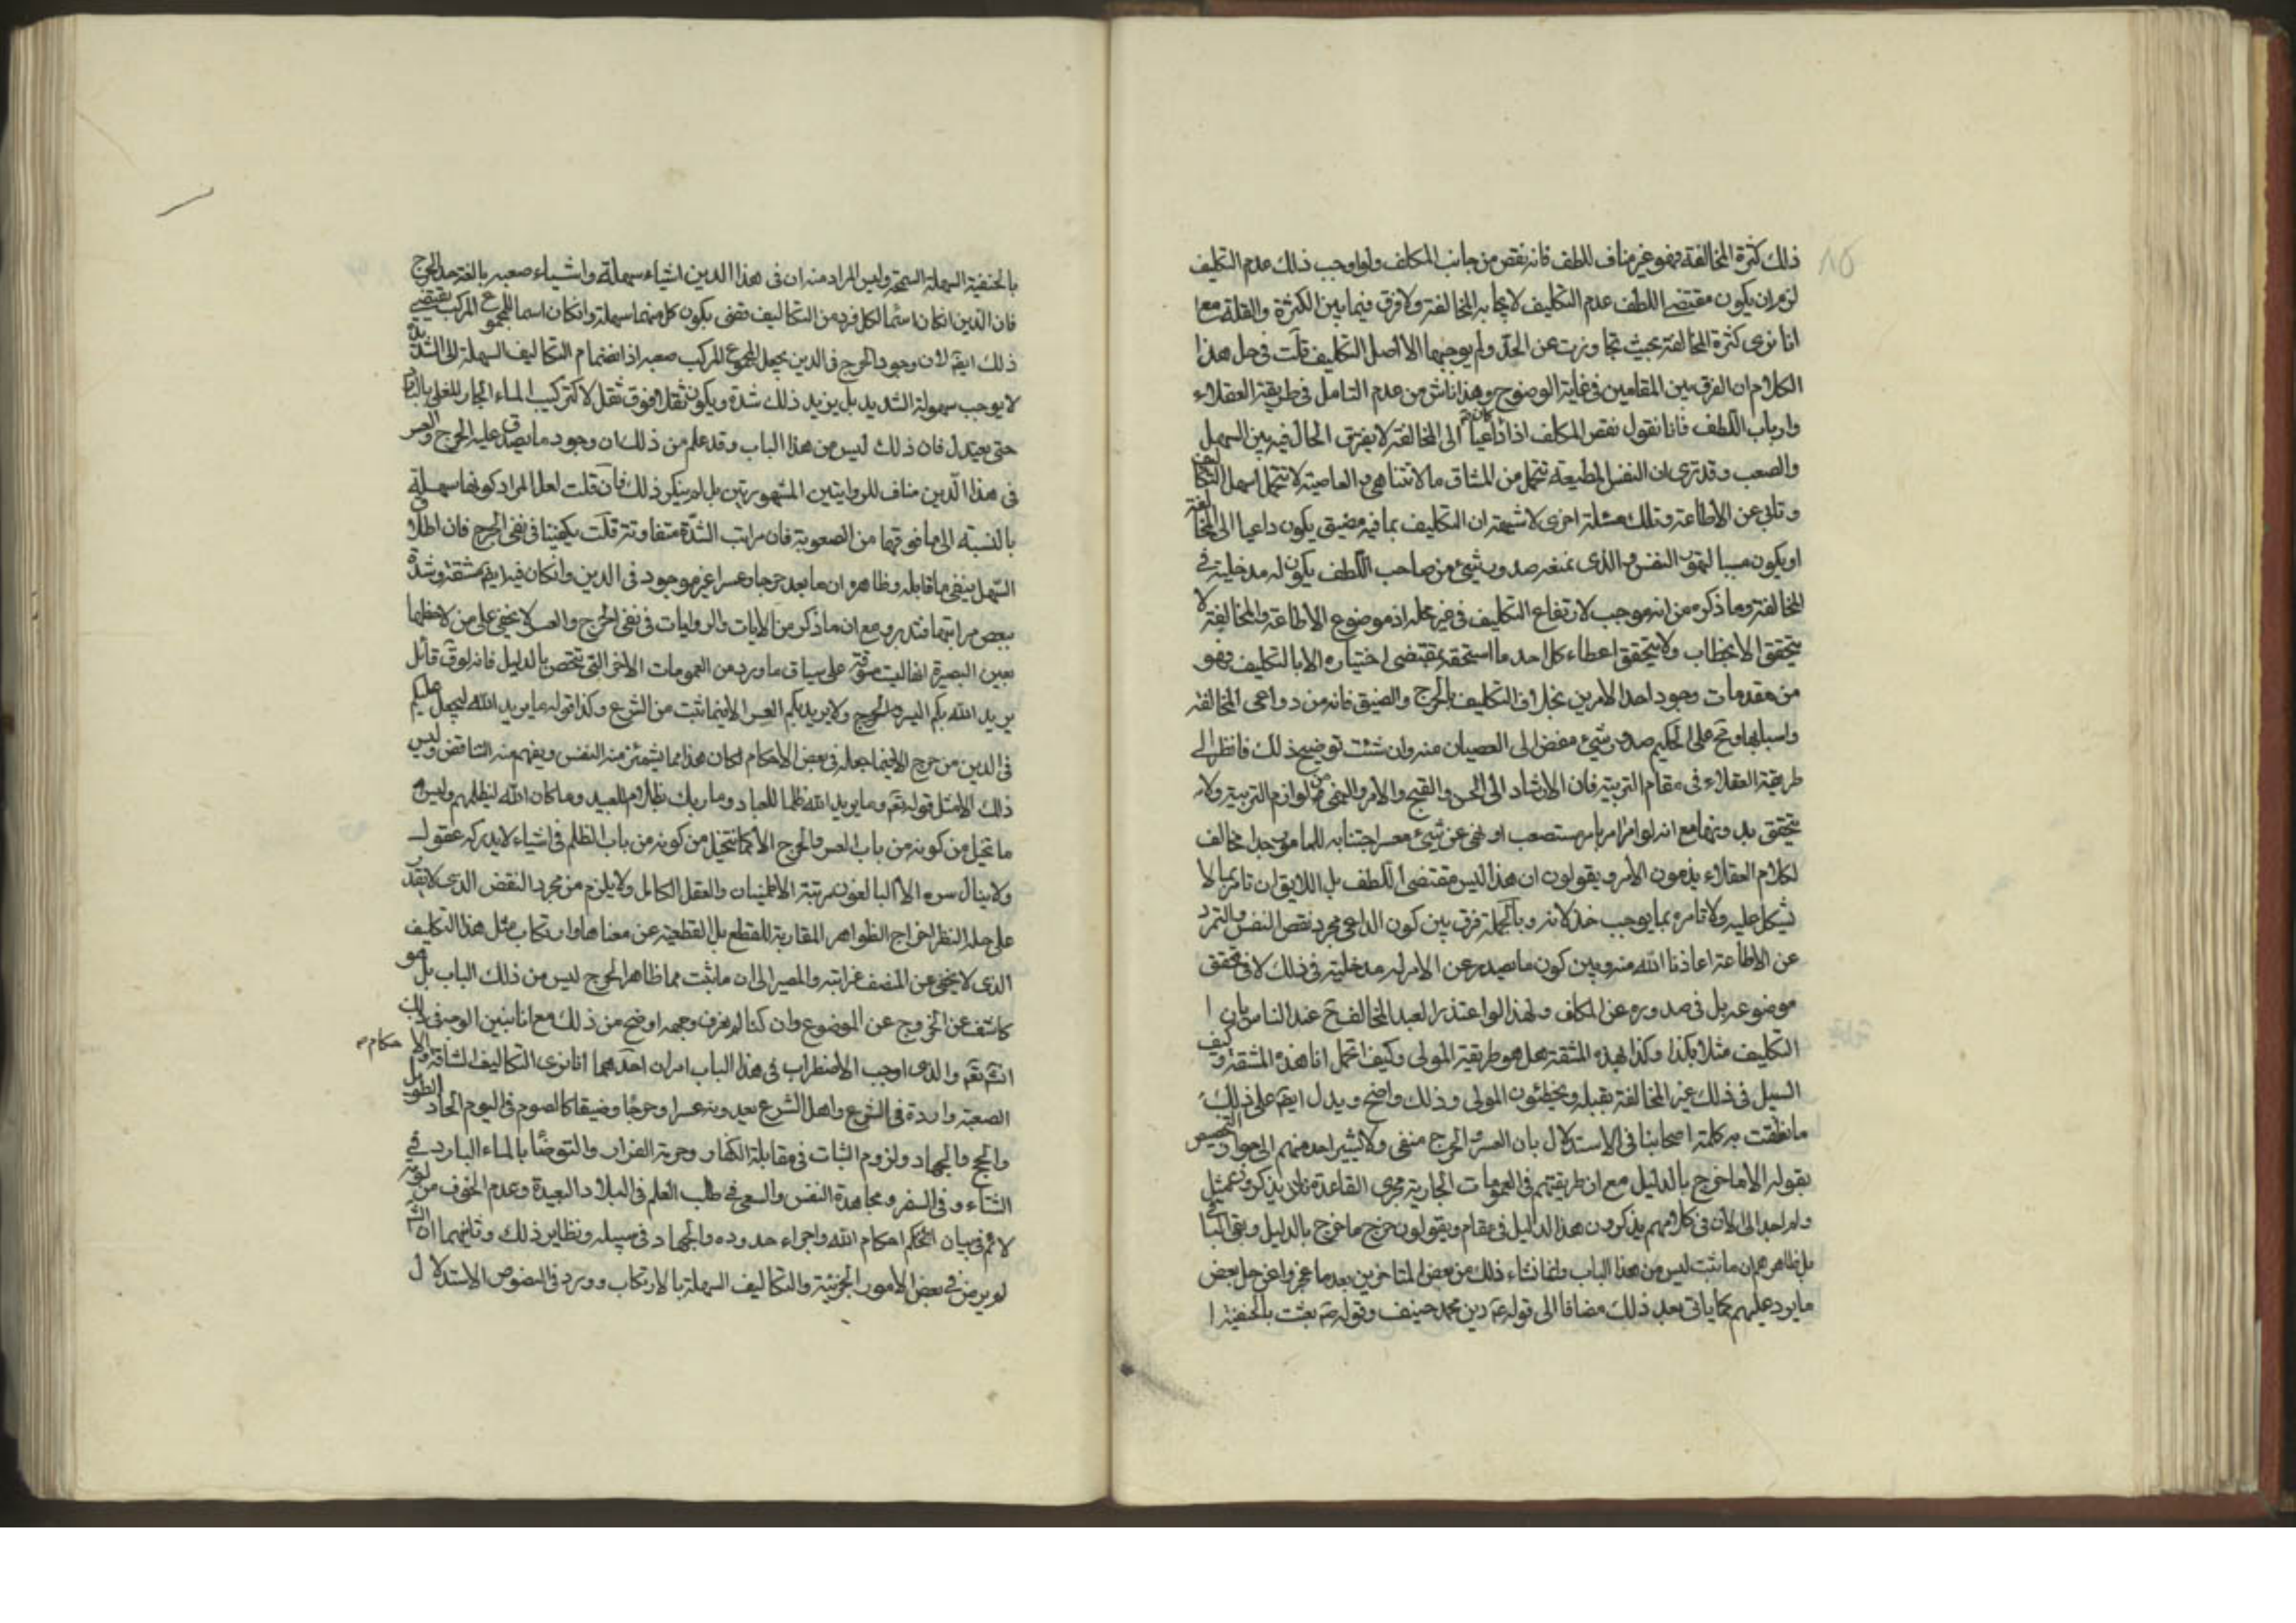 ذلك كثرة المخالفة فهو غير مناف للطف فانه نقص من جانب المكلف ولو اوجب ذلك عدم التكليف
لزم ان يكون مقتضى اللطف عدم التكليف لايجابه المخالفة ولا فرق فيما بين الكثرة والقلة مع
انا نرى كثرة المخالفة بحيث تجاوزت عن الحد ولم يوجبها الا اصل التكليف قلت في حل هذا
الكلام ان الفرق بين المقامين في غاية الوضوح وهذا ناش من عدم التامل في طريقة العقلاء
وارباب اللطف فانا نقول نقص المكلف اذا كان داعيا الى المخالفة لا يفرق الحال فيه بين السهل
والصعب وقد ترى ان النفس المطيعة تتحمل من المشاق ما لا تتناهى والعاصية لا تتحمل اسهل التكاليف
وتابى عن الاطاعة وتلك مسئلة اخرى لا شبهة ان التكليف بما فيه مضيق يكون داعيا الى المخالفة
او يكون سببا لتمرد النفس والذى نمنعه صدور شيء من صاحب اللطف يكون له مدخلية في
المخالفة وما ذكره من انه موجب لارتفاع التكليف في غير محله اذ موضوع الاطاعة والمخالفة لا
يتحقق الا بخطاب ولا يتحقق اعطاء كل احد ما استحقه بمقتضى اختياره الا بالتكليف فهو
من مقدمات وجود احد الامرين بخلاف التكليف بالحرج والضيق فانه من دواعى المخالفة
واسبابها وقبح على الحكيم صدور شيء مفض الى العصيان منه وان شئت توضيح ذلك فانظر الى
طريقة العقلاء في مقام التربية فان الارشاد الى الحسن والقبح والامر والنهى من لوازم التربية ولا
يتحقق بدونهما مع انه لو امر امر بامر مستصعب او نهى عن شيء معسر اجتنابه للمامور بحيث خالف
لكلام العقلاء يذمون الامر ويقولون ان هذا ليس مقتضى اللطف بل اللايق ان تامر بما لا
يشكل عليه ولا تامره بما يوجب خذلانه وبالجملة فرق بين كون الداعى مجرد نقص النفس والتمرد
عن الاطاعة اعاذنا الله منه وبين كون ما يصدر عن الامر له مدخلية في ذلك لا في تحقق
موضوعه بل في صدوره عن المكلف ولهذا لو اعتذر العبد المخالف ح عند الناس بان ا
التكليف مثلا بكذا وكذا لهذه المشقة هل هو طريقة المولى وكيف اتحمل انا هذه المشقة وكيف
السبيل في ذلك غير المخالفة يقبله ويخطئون المولى وذلك واضح ويدل ايضا على ذلك
ما نطقت به كلمة اصحابنا في الاستدلال بان العسر والحرج منفى ولا يشير احد منهم الى جواز التخصيص
بقوله الا ما خرج بالدليل مع ان طريقتهم في العمومات الجارية مجرى القاعدة ان يذكروه بمثل
ولم اجد الى الان في كلامهم يذكرون هذا الدليل في مقام ويقولون خرج ما خرج بالدليل وبقى الباقى
بل ظاهرهم ان ما ثبت ليس من هذا الباب وانما نشاء ذلك من بعض المتاخرين بعد ما عجزوا عن حل بعض
ما يرد عليهم كما ياتى بعد ذلك مضافا الى قوله ع دين محمد حنيف وقوله ص بعثت بالحنفية ا
بالحنفية السهلة السمحة وليس المراد منه ان في هذا الدين اشياء سهلة واشياء صعبه بالغة حد الحرج
فان الدين ان كان اسما لكل فرد من التكاليف تقضى بكون كل منها سهلة وان كان اسما للمجموع المركب يقتضى
ذلك ايضا لان وجود الحرج في الدين يجعل المجموع المركب صعبه اذ انضمام التكاليف السهلة الى الشديدة
لا يوجب سهولة الشديد بل يزيد ذلك شدة ويكون ثقلا فوق ثقل لا كتركيب الماء الحار المغلى بالبارد
حتى يعتدل فان ذلك ليس من هذا الباب وقد علم من ذلك ان وجود ما يصدق عليه الحرج والعسر
في هذا الدين مناف للروايتين المشهورتين بل لم ينكر ذلك فان قلت لعل المراد كونها سهلة
بالنسبة الى ما فوقها من الصعوبة فان مراتب الشدة متفاوتة قلت يكفينا في نفى الحرج فان اطلاق
السهل ينفى ما قابله وظاهر ان ما يعد حرجا وعسرا غير موجود في الدين وان كان فيه ايضا مشقة وشدة
ببعض مراتبها فتدبر ومع ان ما ذكر من الايات والروايات في نفى الحرج والعسر لا يخفى على من لاحظها
بعين البصيرة انها ليست على سياق ما ورد من العمومات الاخر التى تختص بالدليل فانه لو قال قائل
يريد الله بكم اليسر ولا يريد بكم العسر الا فيما ثبت من الشرع وكذا قوله ما يريد الله ليجعل عليكم
في الدين من حرج الا فيما جعله في بعض الاحكام لكان هذا مما يشمئز منه النفس ويفهم منه التناقض وليس
ذلك الا مثل قوله تع وما يريد الله ظلما للعباد وما ربك بظلام للعبيد وما كان الله ليظلمهم وليس
ما تخيل من كونه من باب العسر والحرج الا كما تتخيل من كونه من باب الظلم في اشياء لا يدركه عقول
ولا ينال سره الا البالغون مرتبة الاطمينان والعقل الكامل ولا يلزم من مجرد النقض الذى لا نقدر
على حله النظر اخراج الظواهر المقاربة للقطع بل القطعية عن معناها وارتكاب مثل هذا التكليف
الذى لا يخفى عن المنصف غرابته والمصير الى ان ما ثبت مما ظاهر الحرج ليس من ذلك الباب بل هو
كاشف عن الخروج عن الموضوع وان كنا لم نعرف وجهه اوضح من ذلك مع انا نبين الوجه في ذلك
انش تع والذى اوجب الاضطراب في هذا الباب امران احدهما انا نرى التكاليف الشاقة والاحكام
الصعبة واردة في الشرع واهل الشرع يعدونه عسرا وحرجا وضيقا كالصوم في اليوم الحار الطويل
والحج والجهاد ولزوم الثبات في مقابلة الكفار وحرمة الفرار والتوضأ بالماء البارد في
الشتاء وفى السفر ومجاهدة النفس والسعى في طلب العلم في البلاد البعيدة وعدم الخوف من لومة
لائم في بيان احكام الله واجراء حدوده والجهاد في سبيله ونظاير ذلك وثانيهما ان الش
لم يرض في بعض الامور الجزئية والتكاليف السهلة بالارتكاب وورد في النصوص الاستدلال